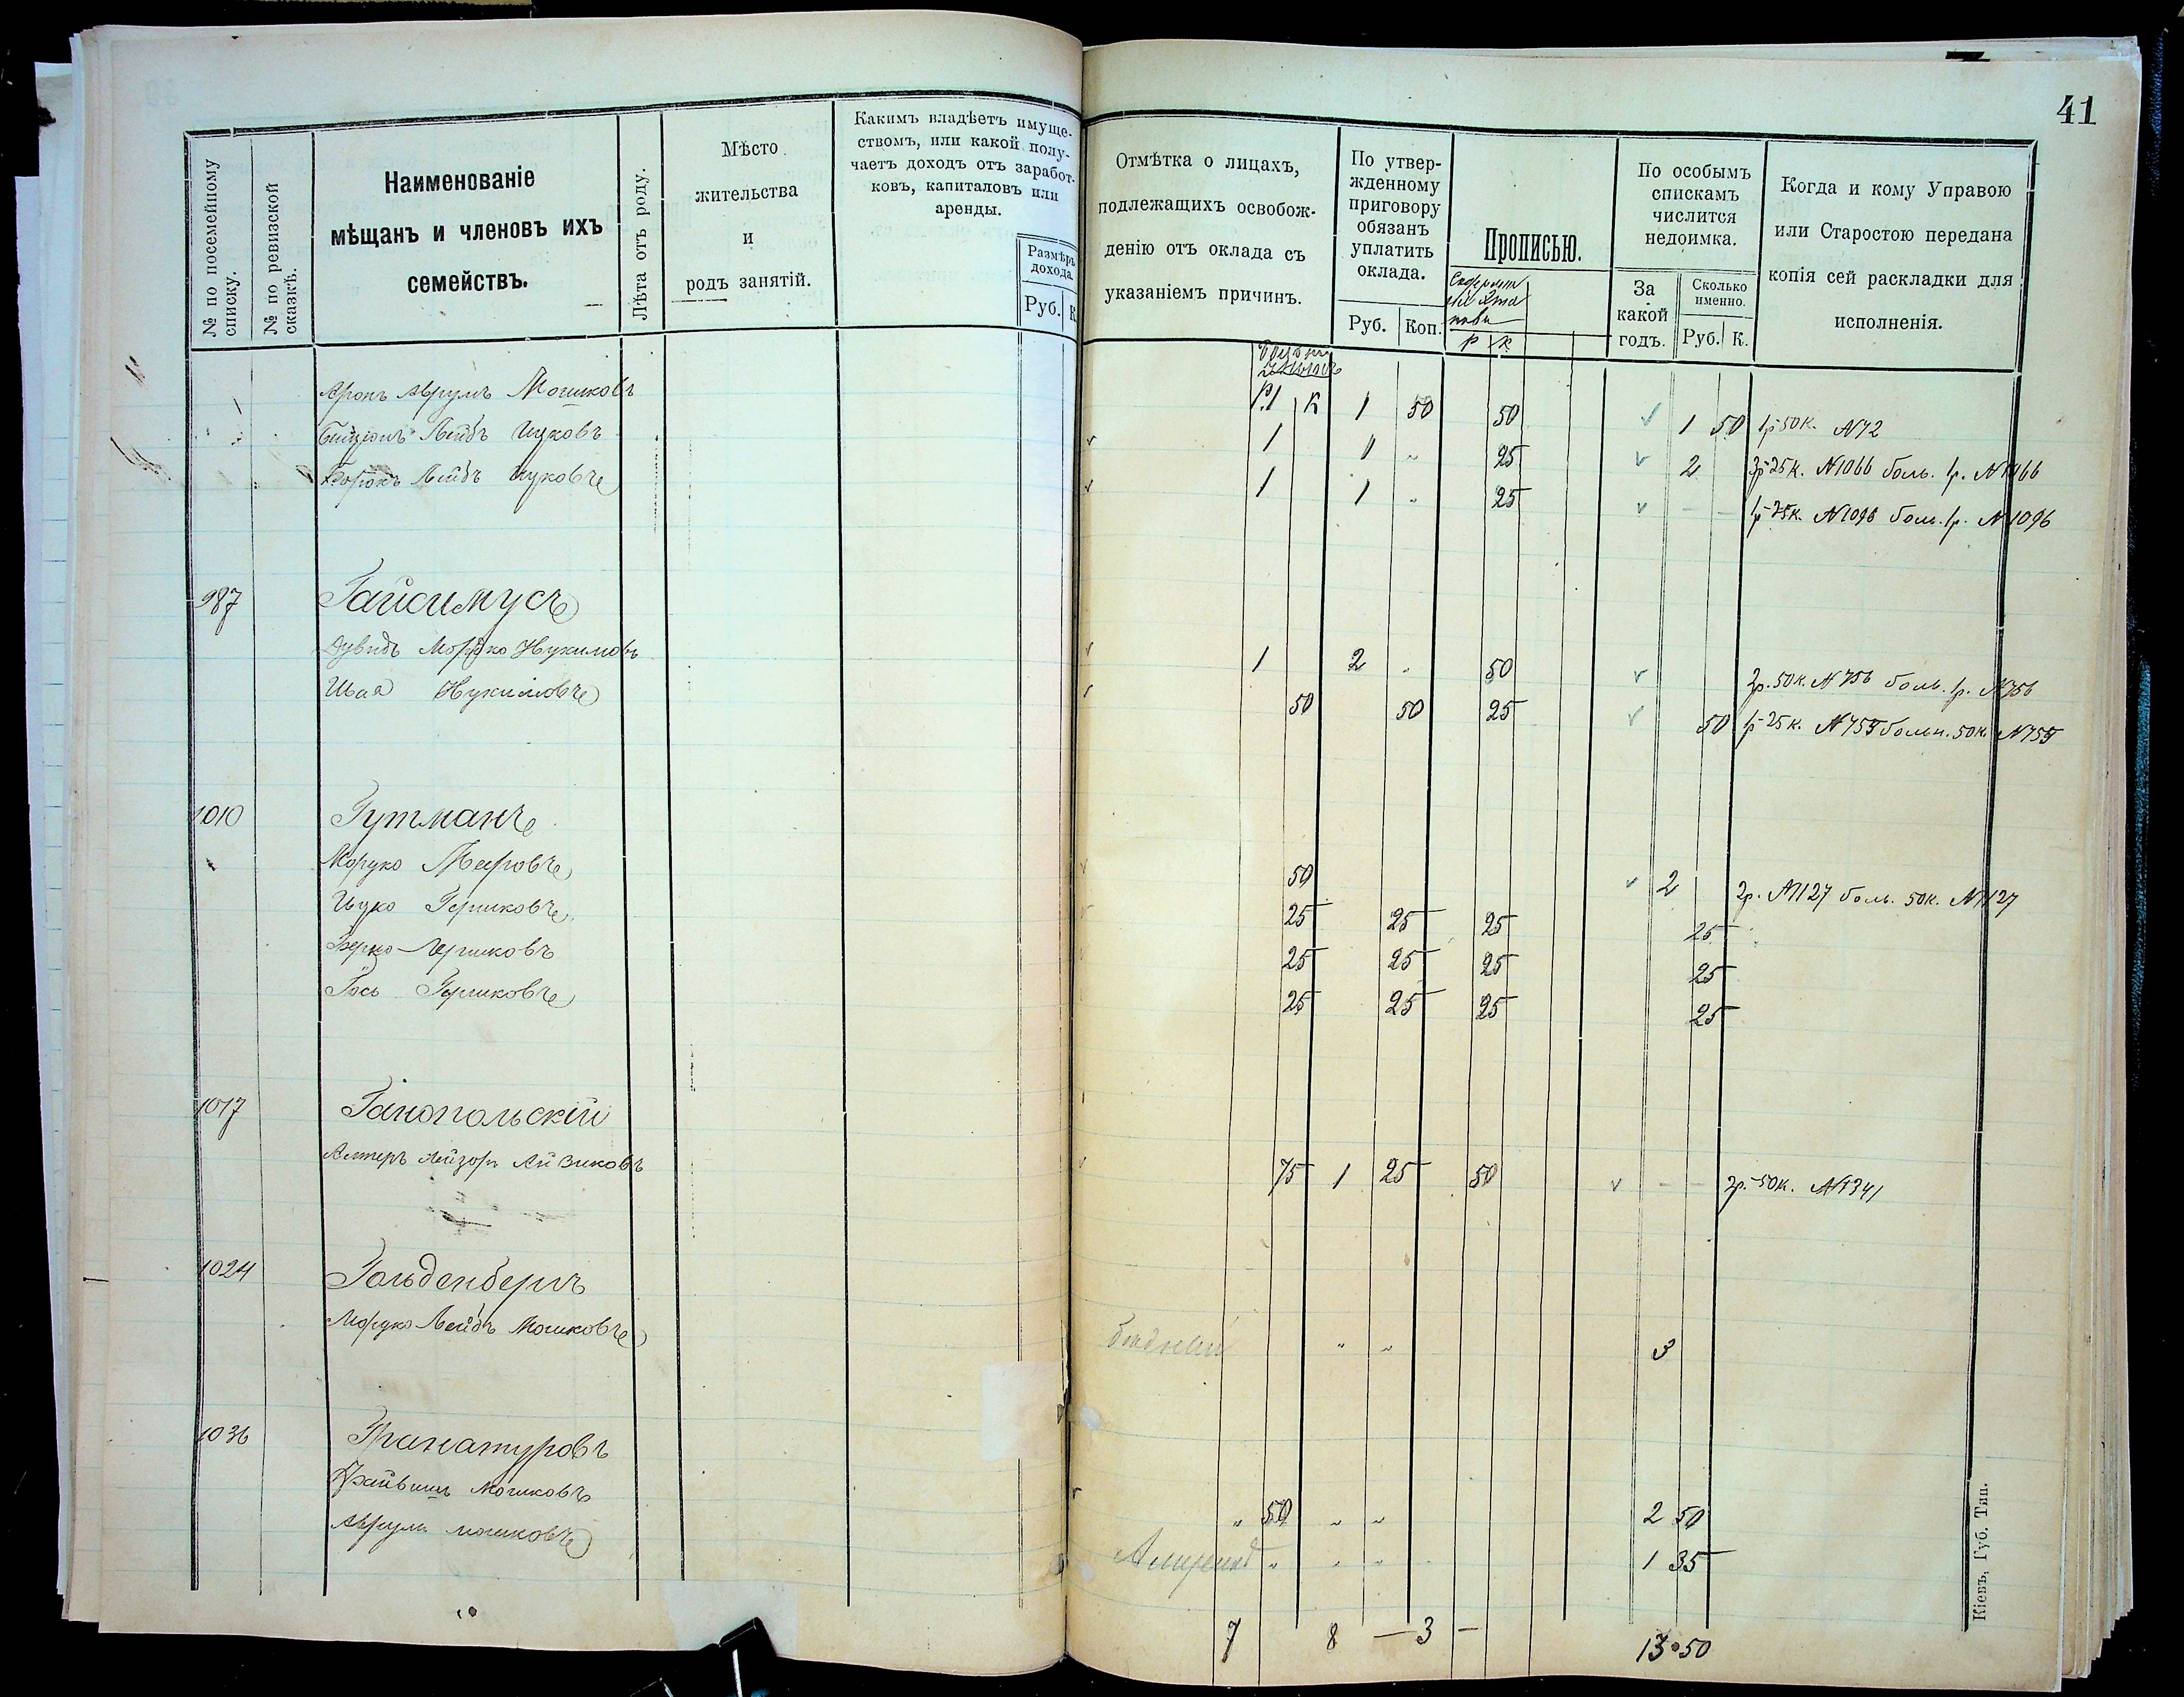 41
№ по посемейному списку.
№ по ревизской сказкѣ.
Наименованіе
мѣщанъ и членовъ ихъ
семействъ.
Лѣта отъ роду.
Мѣсто
жительства
и
родъ занятій.
Какимъ владѣетъ имуще-
ствомъ, или какой полу-
чаетъ доходъ отъ заработ-
ковъ, капиталовъ или
аренды.
Размѣръ
дохода.
Руб. К
Отмѣтка о лицахъ,
подлежащихъ освобож-
денію отъ оклада съ
указаніемъ причинъ.
По утвер-
жденному
приговору
обязанъ
уплатить
оклада.
Руб. Коп.
Прописью.
Р К
По особымъ
спискамъ
числится
недоимка.
За
какой
годъ.
Сколько
именно.
Руб. К.
Когда и кому Управою
или Старостою передана
копія сей раскладки для
исполненія.
Аронъ Аврумъ Мошковъ 1 50 50 1 50 1р 50к. №72
Лейбъ Ицковъ 1 1 „ 25 2 25к. №1066 боль. 1р. №1066
Лейбъ Ицковъ 1 1 „ 25 – – 1р 25к. №1096 боль. 1р. №1096
987 Гайсимусъ
Дувидъ Мордко Нухимовъ 1 2 „ 50 2р. 50к. №756 боль. 1р. №756
Шая Нухимовъ 50 50 25 50 1р 25к. №755 больн. 50к. №755
1010 Гутманъ
Мордко Мееровъ 50 2 2р. №1127 боль. 50к. №1127
Ицко Гершковъ 25 25 25 25
Берко Гершковъ 25 25 25 25
Іось Гершковъ 25 25 25 25
1017 Гайопольскій
Алтеръ Лейзоръ Айзиковъ 75 1 25 50 – – 2р. 50к. №1341
1024 Гольденбергъ
Мордко Лейбъ Мошковъ бѣдный „ „ 3
1036 Гранатуровъ
Файвишъ Мошковъ „ 50 „ „ 2 50
Аврумъ Мошковъ „ „ „ 1 35
7 8 – 3 – 13 50
Кіевъ, Губ. Тип.